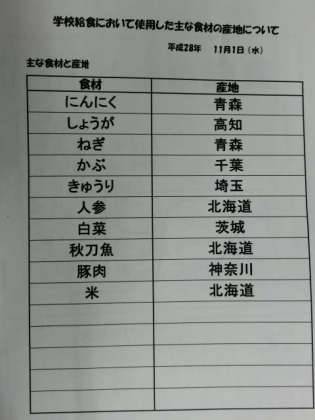 学校給食において使用した主な食材の産地について
平成28年 11月1日（水）
主な食材と産地
食材 産地
にんにく 青森
しょうが 高知
ねぎ 青森
かぶ 千葉
きゅうり 埼玉
人参 北海道
白菜 茨城
秋刀魚 北海道
豚肉 神奈川
米 北海道